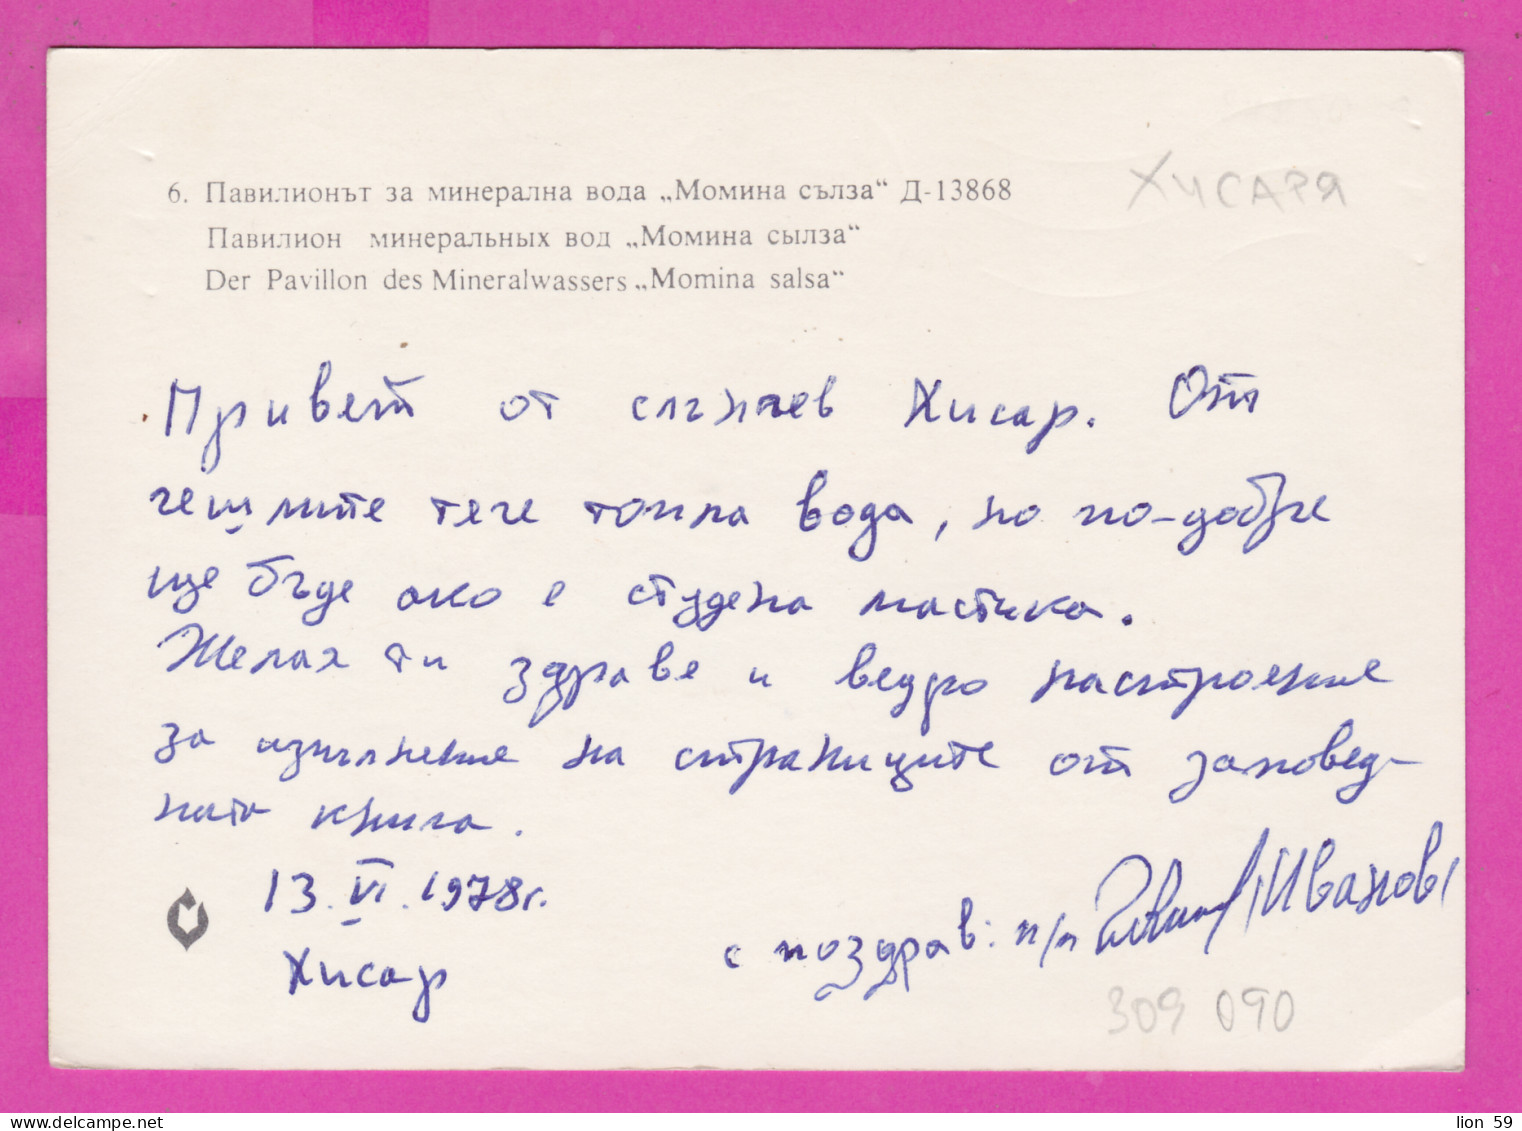 6. Павилионът за минерална вода „Момина сълза“ Д-13868
Павилион минеральных вод „Момина сылза“
Der Pavillon des Mineralwassers „Momina salsa“
ХИСАРЯ
Привет от слънчев Хисар. От
чешмите тече топла вода, но по-добре
ще бъде ако е студена мастика.
Желая ти здраве и ведро настроение
за изпълнение на страниците от заповед-
ната книга.
13.VI.1978г.
Хисар
с поздрав: п/п Иванов/
309 090
lion 59